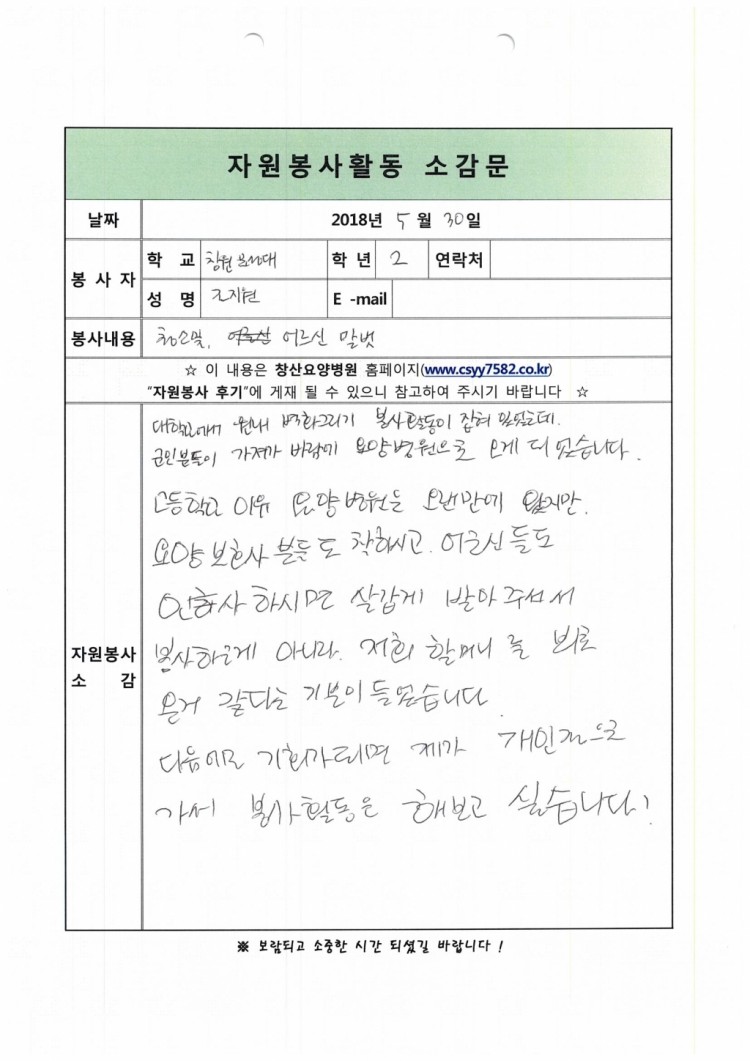 자원봉사활동 소감문
날짜 2018년 5월 30일
봉사자 학교 창원문성대 학년 2 연락처
성명 조지현 E-mail
봉사내용 청소및, 어르신 말벗
☆ 이 내용은 창산요양병원 홈페이지(www.csyy7582.co.kr)
"자원봉사 후기"에 게재 될 수 있으니 참고하여 주시기 바랍니다 ☆
대학교에서 원내 벽화그리기 봉사활동이 잡혀 있었는데.
군인분들이 가져가 바람에 요양병원으로 오게 되었습니다.
고등학교 이후 요양병원은 오랜만에 왔지만.
요양보호사 분들도 착하시고. 어르신들도
인사 하시면 살갑게 받아주셔서
자원봉사 소감
봉사하는게 아니라. 저희 할머니를 뵈로
온거 같다는 기분이 들었습니다.
다음에도 기회가되면 제가 개인적으로
가서 봉사활동은 해보고 싶습니다!
※ 보람되고 소중한 시간 되셨길 바랍니다 !